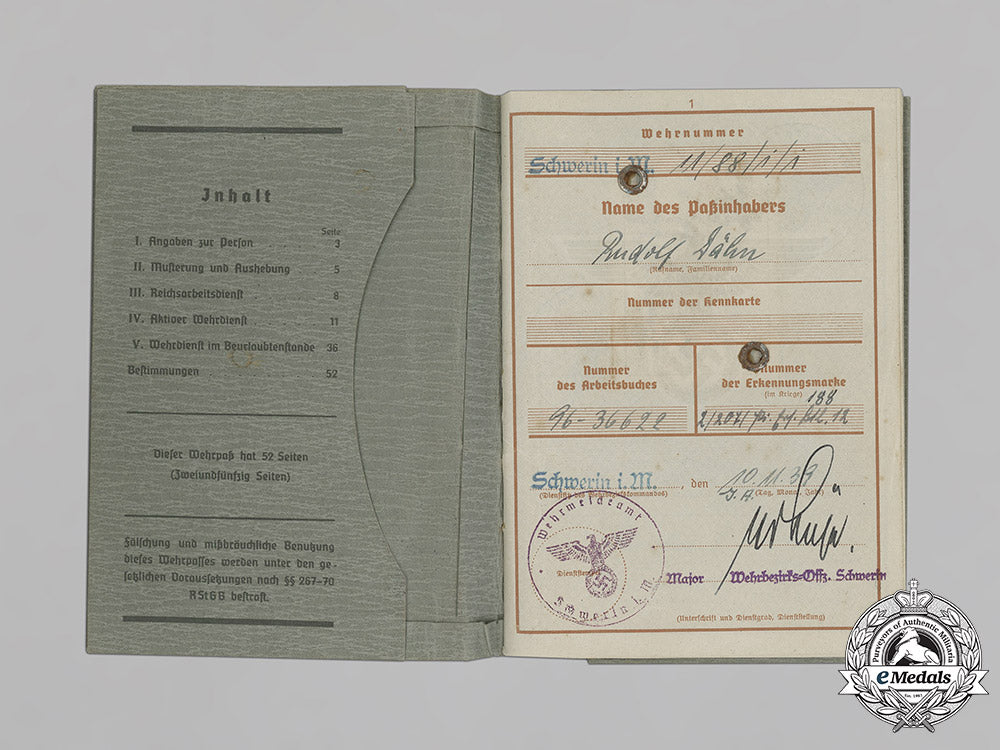 Inhalt
Seite
I. Angaben zur Person . . . . 3
II. Musterung und Aushebung 5
III. Reichsarbeitsdienst . . . . 8
IV. Aktiver Wehrdienst . . . . 11
V. Wehrdienst im Beurlaubtenstande 36
Bestimmungen . . . . . 52
Dieser Wehrpaß hat 52 Seiten
(Zweiundfünfzig Seiten)
Fälschung und mißbräuchliche Benutzung
dieses Wehrpasses werden unter den ge-
setzlichen Voraussetzungen nach §§ 267-70
RStGB bestraft.
1
Wehrnummer
Schwerin i. M. 11/88/1/1
Name des Paßinhabers
Rudolf Dähn
(Rufname, Familienname)
Nummer der Kennkarte
Nummer
des Arbeitsbuches
96-36622
Nummer
der Erkennungsmarke
(im Kriege)
188
2/204/ 12
Schwerin i. M. , den 10.11.39
(Dienstsitz des Wehrbezirkskommandos) (Tag, Monat, Jahr)
J.A.
Wehrmeldeamt
Schwerin i. M.
Major Wehrbezirks-Offz. Schwerin
(Unterschrift und Dienstgrad, Dienststellung)
Purveyors of Authentic Militaria
eMedals